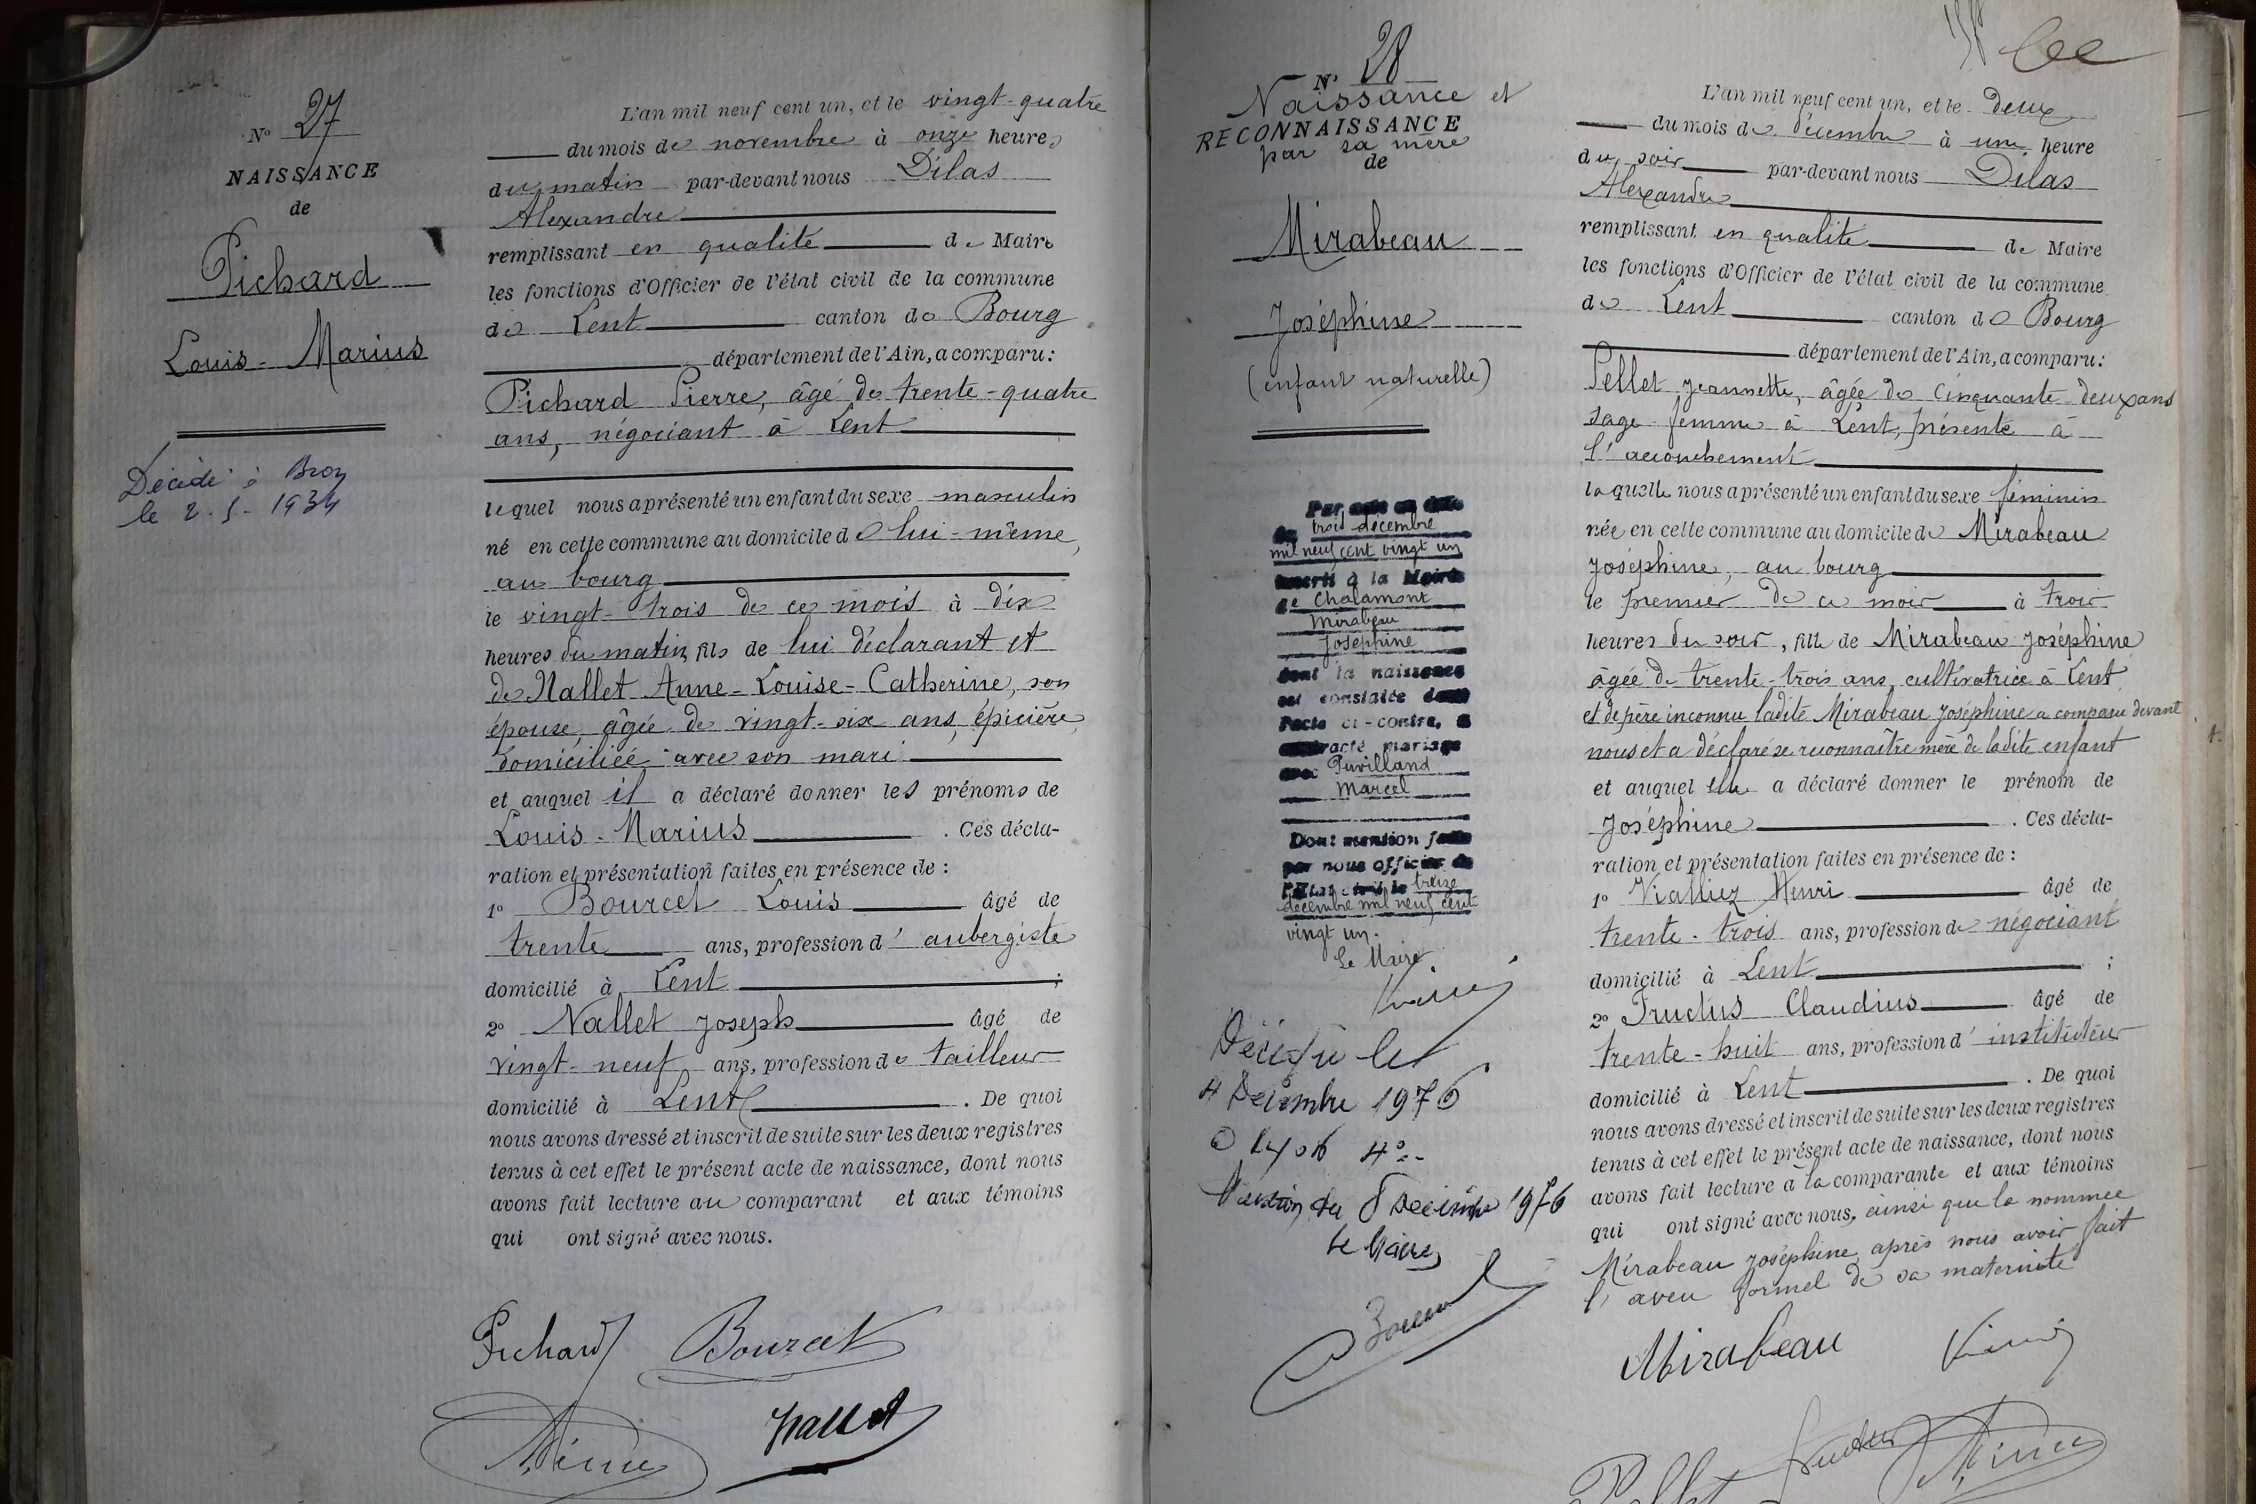 N° 27
NAISSANCE
de
Pichard
Louis-Marius
Décédé à Bron
le 2-5-1934
L'an mil neuf cent un, et le vingt-quatre
du mois de novembre à onze heures
du matin par-devant nous Dilas
Alexandre
remplissant en qualité de Maire
les fonctions d'Officier de l'état civil de la commune
de Lent canton de Bourg
département de l'Ain, a comparu:
Pichard Pierre, âgé de trente-quatre
ans, négociant à Lent
lequel nous a présenté un enfant du sexe masculin
né en cette commune au domicile de lui-même,
au bourg
le vingt-trois de ce mois à dix
heures du matin, fils de lui déclarant et
de Nallet Anne-Louise-Catherine, son
épouse, âgée de vingt-six ans, épicière,
domiciliée avec son mari
et auquel il a déclaré donner les prénoms de
Louis-Marius . Ces décla-
ration et présentation faites en présence de :
1° Bourcet Louis âgé de
trente ans, profession d'aubergiste
domicilié à Lent ;
2° Nallet Joseph âgé de
vingt-neuf ans, profession de tailleur
domicilié à Lent . De quoi
nous avons dressé et inscrit de suite sur les deux registres
tenus à cet effet le présent acte de naissance, dont nous
avons fait lecture au comparant et aux témoins
qui ont signé avec nous.
Pichard Bourcet
Nallet
N° 28
Naissance et
RECONNAISSANCE
par sa mère
de
Mirabeau
Joséphine
(enfant naturelle)
Par acte en date
du trois décembre
mil neuf cent vingt un
inscrit à la Mairie
de Chalamont
Mirabeau
Joséphine
dont la naissance
est constatée dans
l'acte ci-contre, a
contracté mariage
avec Puvilland
Marcel
Dont mention faite
par nous officier de
l'Etat civil le treize
décembre mil neuf cent
vingt un.
Le Maire
Décédée le
4 Décembre 1976
à Lyon 4°
Mention du 8 Décembre 1976
Le Maire
L'an mil neuf cent un, et le deux
du mois de décembre à une heure
du soir par-devant nous Dilas
Alexandre
remplissant en qualité de Maire
les fonctions d'Officier de l'état civil de la commune
de Lent canton de Bourg
département de l'Ain, a comparu:
Pellet Jeannette, âgée de cinquante-deux ans
sage femme à Lent, présente à
l'accouchement
laquelle nous a présenté un enfant du sexe féminin
née en cette commune au domicile de Mirabeau
Joséphine, au bourg
le premier de ce mois à trois
heures du soir, fille de Mirabeau Joséphine
âgée de trente-trois ans, cultivatrice à Lent
et de père inconnu ladite Mirabeau Joséphine a comparu devant
nous et a déclaré se reconnaître mère de ladite enfant
et auquel elle a déclaré donner le prénom de
Joséphine . Ces décla-
ration et présentation faites en présence de :
1° Vialliez Henri âgé de
trente-trois ans, profession de négociant
domicilié à Lent ;
2° Fructus Claudius âgé de
trente-huit ans, profession d'instituteur
domicilié à Lent . De quoi
nous avons dressé et inscrit de suite sur les deux registres
tenus à cet effet le présent acte de naissance, dont nous
avons fait lecture à la comparante et aux témoins
qui ont signé avec nous, ainsi que la nommée
Mirabeau Joséphine après nous avoir fait
l'aveu formel de sa maternité
Mirabeau
Fructus
Pellet